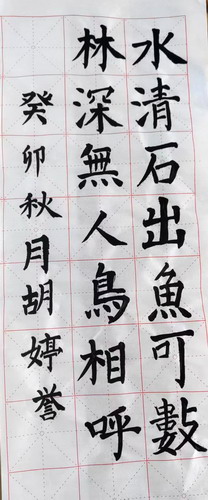 水清石出魚可數
林深無人鳥相呼
癸卯秋月胡婷誉